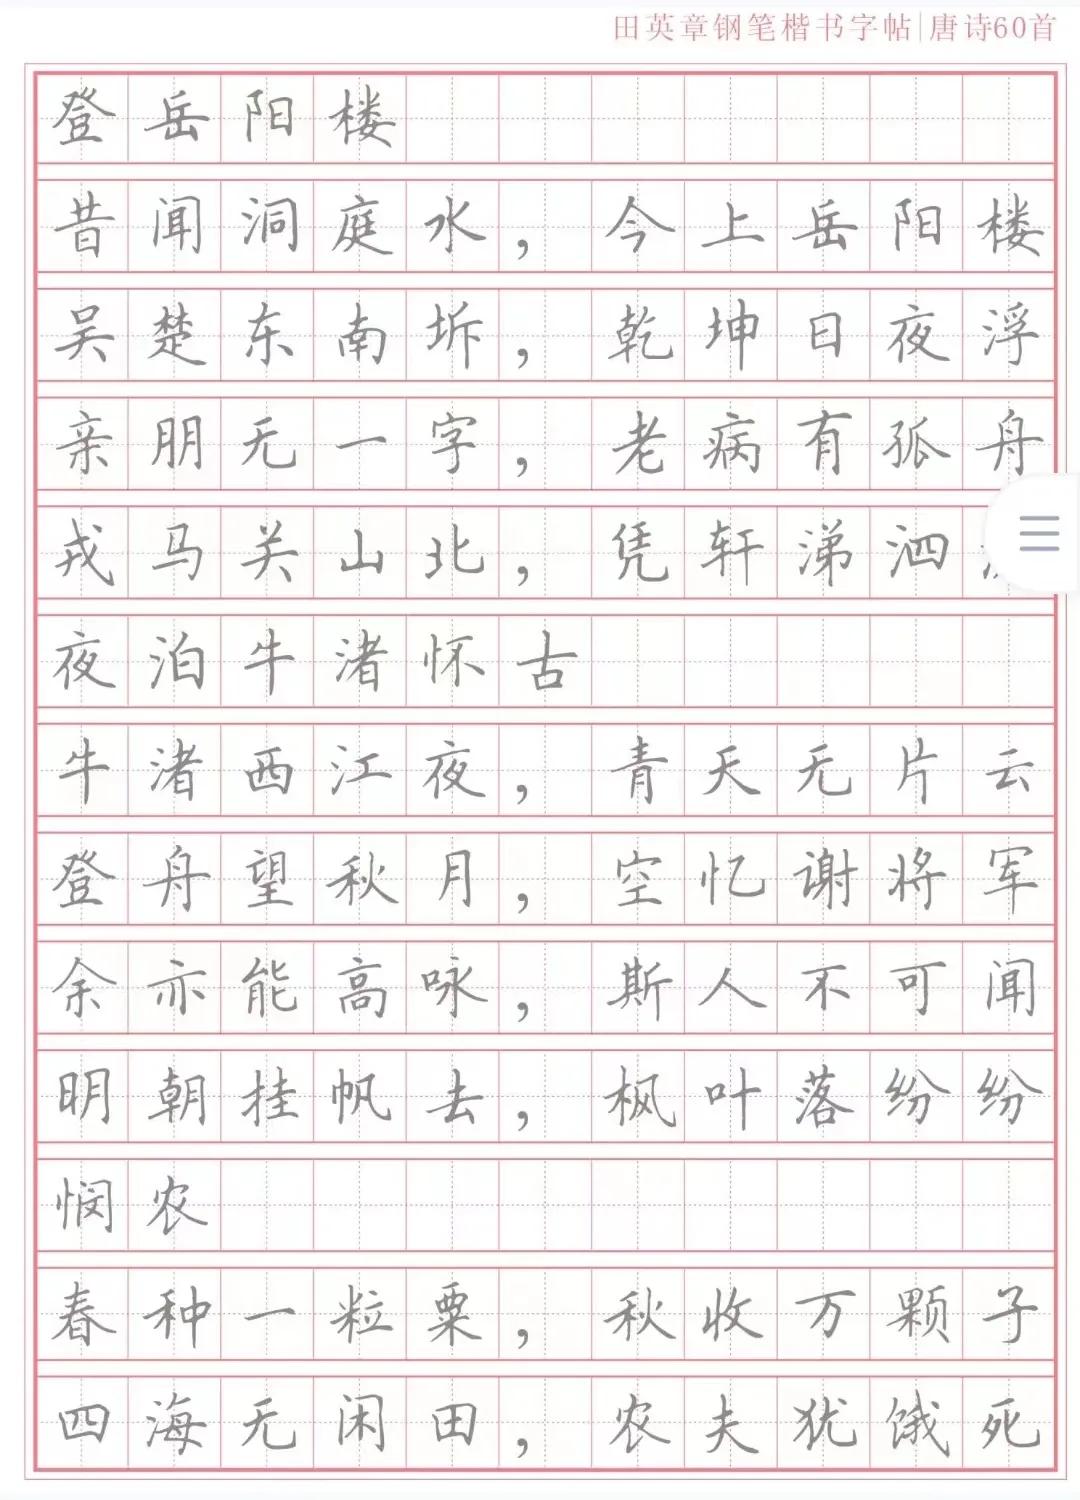 田英章钢笔楷书字帖|唐诗60首
登岳阳楼
昔闻洞庭水，今上岳阳楼
吴楚东南坼，乾坤日夜浮
亲朋无一字，老病有孤舟
戎马关山北，凭轩涕泗
夜泊牛渚怀古
牛渚西江夜，青天无片云
登舟望秋月，空忆谢将军
余亦能高咏，斯人不可闻
明朝挂帆去，枫叶落纷纷
悯农
春种一粒粟，秋收万颗子
四海无闲田，农夫犹饿死